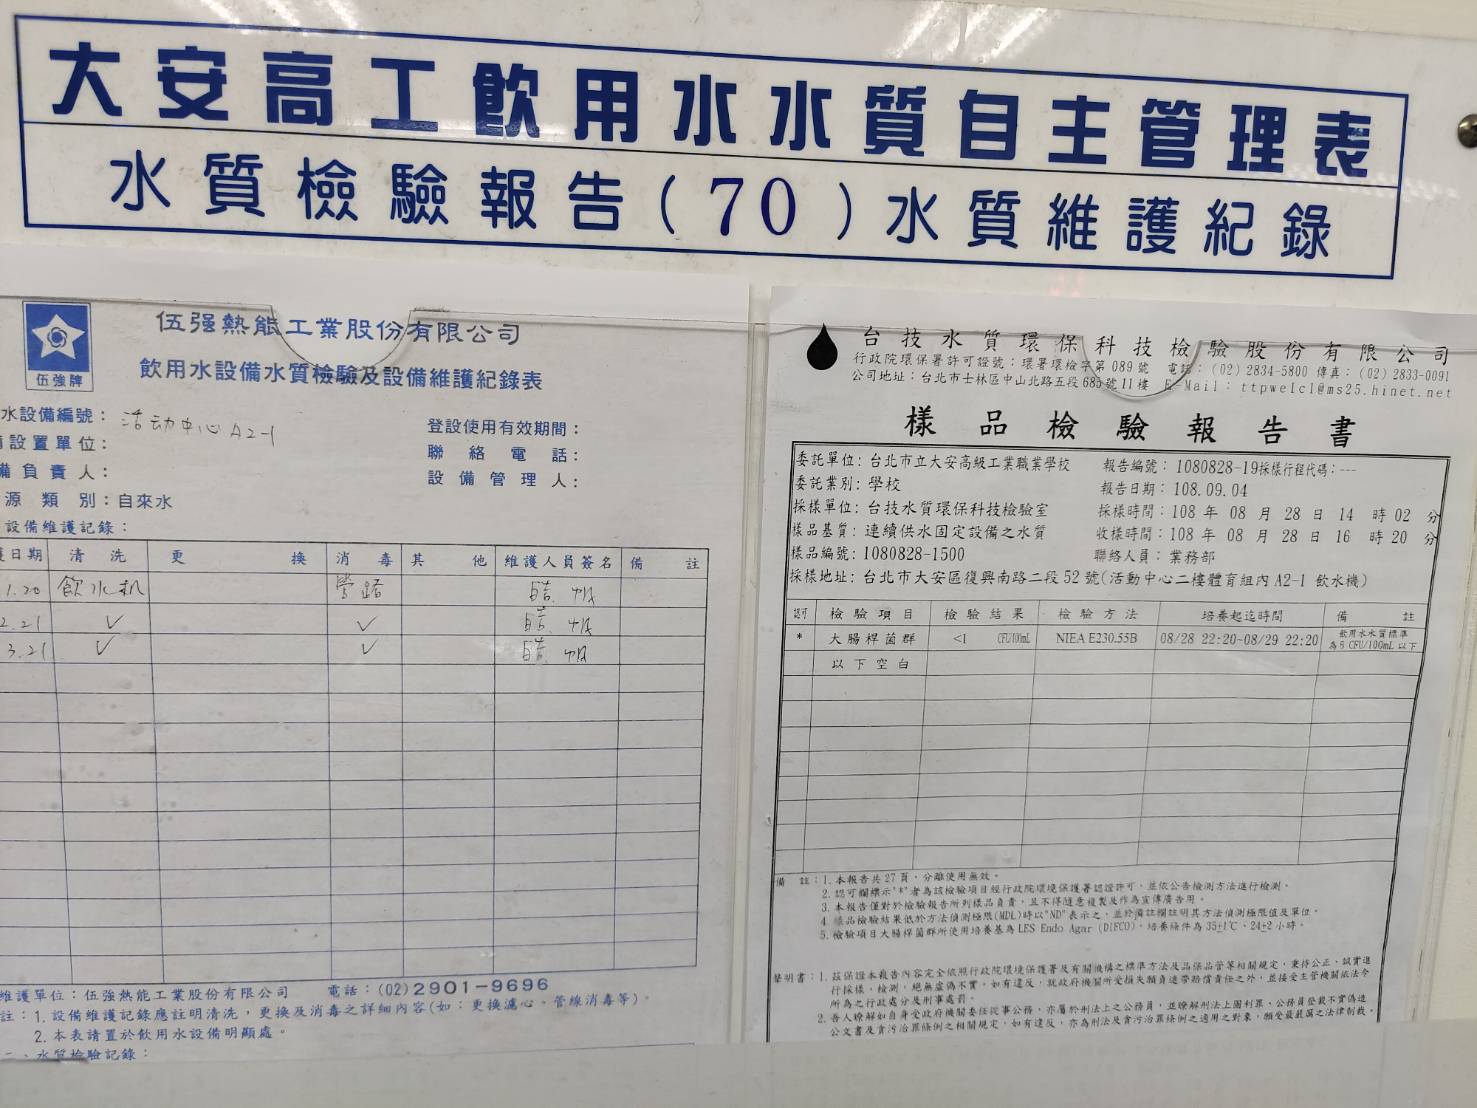 大安高工飲用水水質自主管理表
水質檢驗報告(70)水質維護紀錄
伍強牌
伍强熱能工業股份有限公司
飲用水設備水質檢驗及設備維護紀錄表
水設備編號：活动中心 A2-1
設置單位：
備負責人：
源類別：自來水
登設使用有效期間：
聯絡電話：
設備管理人：
設備維護記錄：
日期 清洗 更換 消毒 其他 維護人員簽名 備註
1.20 飲水机 管路
2.21 ✓ ✓
3.21 ✓ ✓
維護單位：伍強熱能工業股份有限公司 電話：(02)2901-9696
註：1.設備維護記錄應註明清洗，更換及消毒之詳細內容(如：更換濾心、管線消毒等)。
2.本表請置於飲用水設備明顯處。
二、水質檢驗記錄：
台技水質環保科技檢驗股份有限公司
行政院環保署許可證號：環署環檢字第089號 電話：(02)2834-5800 傳真：(02)2833-0091
公司地址：台北市士林區中山北路五段685號11樓 E-Mail：ttpwelcl@ms25.hinet.net
樣品檢驗報告書
委託單位：台北市立大安高級工業職業學校 報告編號：1080828-19採樣行程代碼：---
委託業別：學校 報告日期：108.09.04
採樣單位：台技水質環保科技檢驗室 採樣時間：108 年 08 月 28 日 14 時 02 分
樣品基質：連續供水固定設備之水質 收樣時間：108 年 08 月 28 日 16 時 20 分
樣品編號：1080828-1500 聯絡人員：業務部
採樣地址：台北市大安區復興南路二段52號(活動中心二樓體育組內 A2-1 飲水機)
認可 檢驗項目 檢驗結果 檢驗方法 培養起迄時間 備註
* 大腸桿菌群 <1 CFU/100mL NIEA E230.55B 08/28 22:20~08/29 22:20 飲用水水質標準為6 CFU/100mL 以下
以下空白
備註：1.本報告共27頁，分離使用無效。
2.認可欄標示"*"者為該檢驗項目經行政院環境保護署認證許可，並依公告檢測方法進行檢測。
3.本報告僅對於檢驗報告所列樣品負責，且不得隨意複製及作為宣傳廣告用。
4.樣品檢驗結果低於方法偵測極限(MDL)時以"ND"表示之，並於備註欄註明其方法偵測極限值及單位。
5.檢驗項目大腸桿菌群所使用培養基為LES Endo Agar (DIFCO)，培養條件為 35±1℃、24±2小時。
聲明書：1.茲保證本報告內容完全依照行政院環境保護署及有關機構之標準方法及品保品管等相關規定，秉持公正、誠實進
行採樣，檢測，絕無虛偽不實，如有違反，就政府機關所受損失願負連帶賠償責任之外，並接受主管機關依法令
所為之行政處分及刑事處罰。
2.吾人瞭解如自身受政府機關委任從事公務，亦屬於刑法上之公務員，並瞭解刑法上圖利罪、公務員登載不實偽造
公文書及貪污治罪條例之相關規定，如有違反，亦為刑法及貪污治罪條例之適用之對象，願受最嚴厲之法律制裁。